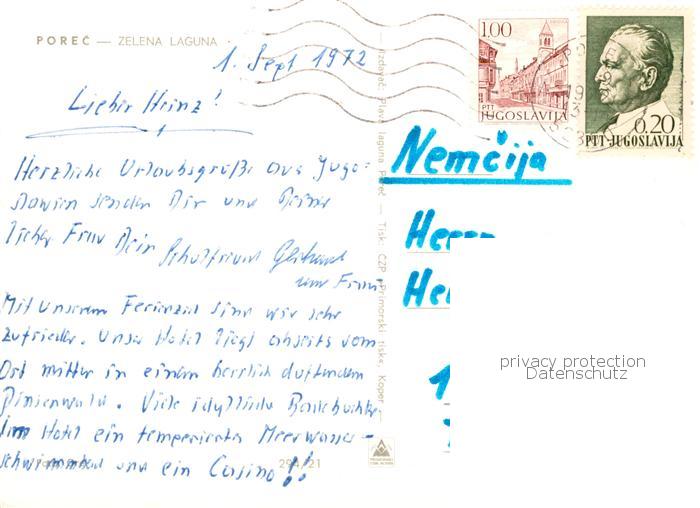 POREČ — ZELENA LAGUNA
1. Sept 1972
Lieber Heinz!
Herzliche Urlaubsgrüße aus Jugo-
slawien senden Dir und Deiner
lieben Frau Dein Schulfreund
und Frau
Mit unserem Ferienziel sind wir sehr
zufrieden. Unser Hotel liegt abseits vom
Ort mitten in einem herrlich duftendem
Pinienwald. Viele idyllische
Im Hotel ein temperiertes Meerwasser-
schwimmbad und ein Casino!!
294/21
Izdavač: Plava laguna Poreč — Tisk: ČZP »Primorski tisk«, Koper
1.00
PTT
JUGOSLAVIJA
0.20
PTT-JUGOSLAVIJA
Nemčija
privacy protection
Datenschutz